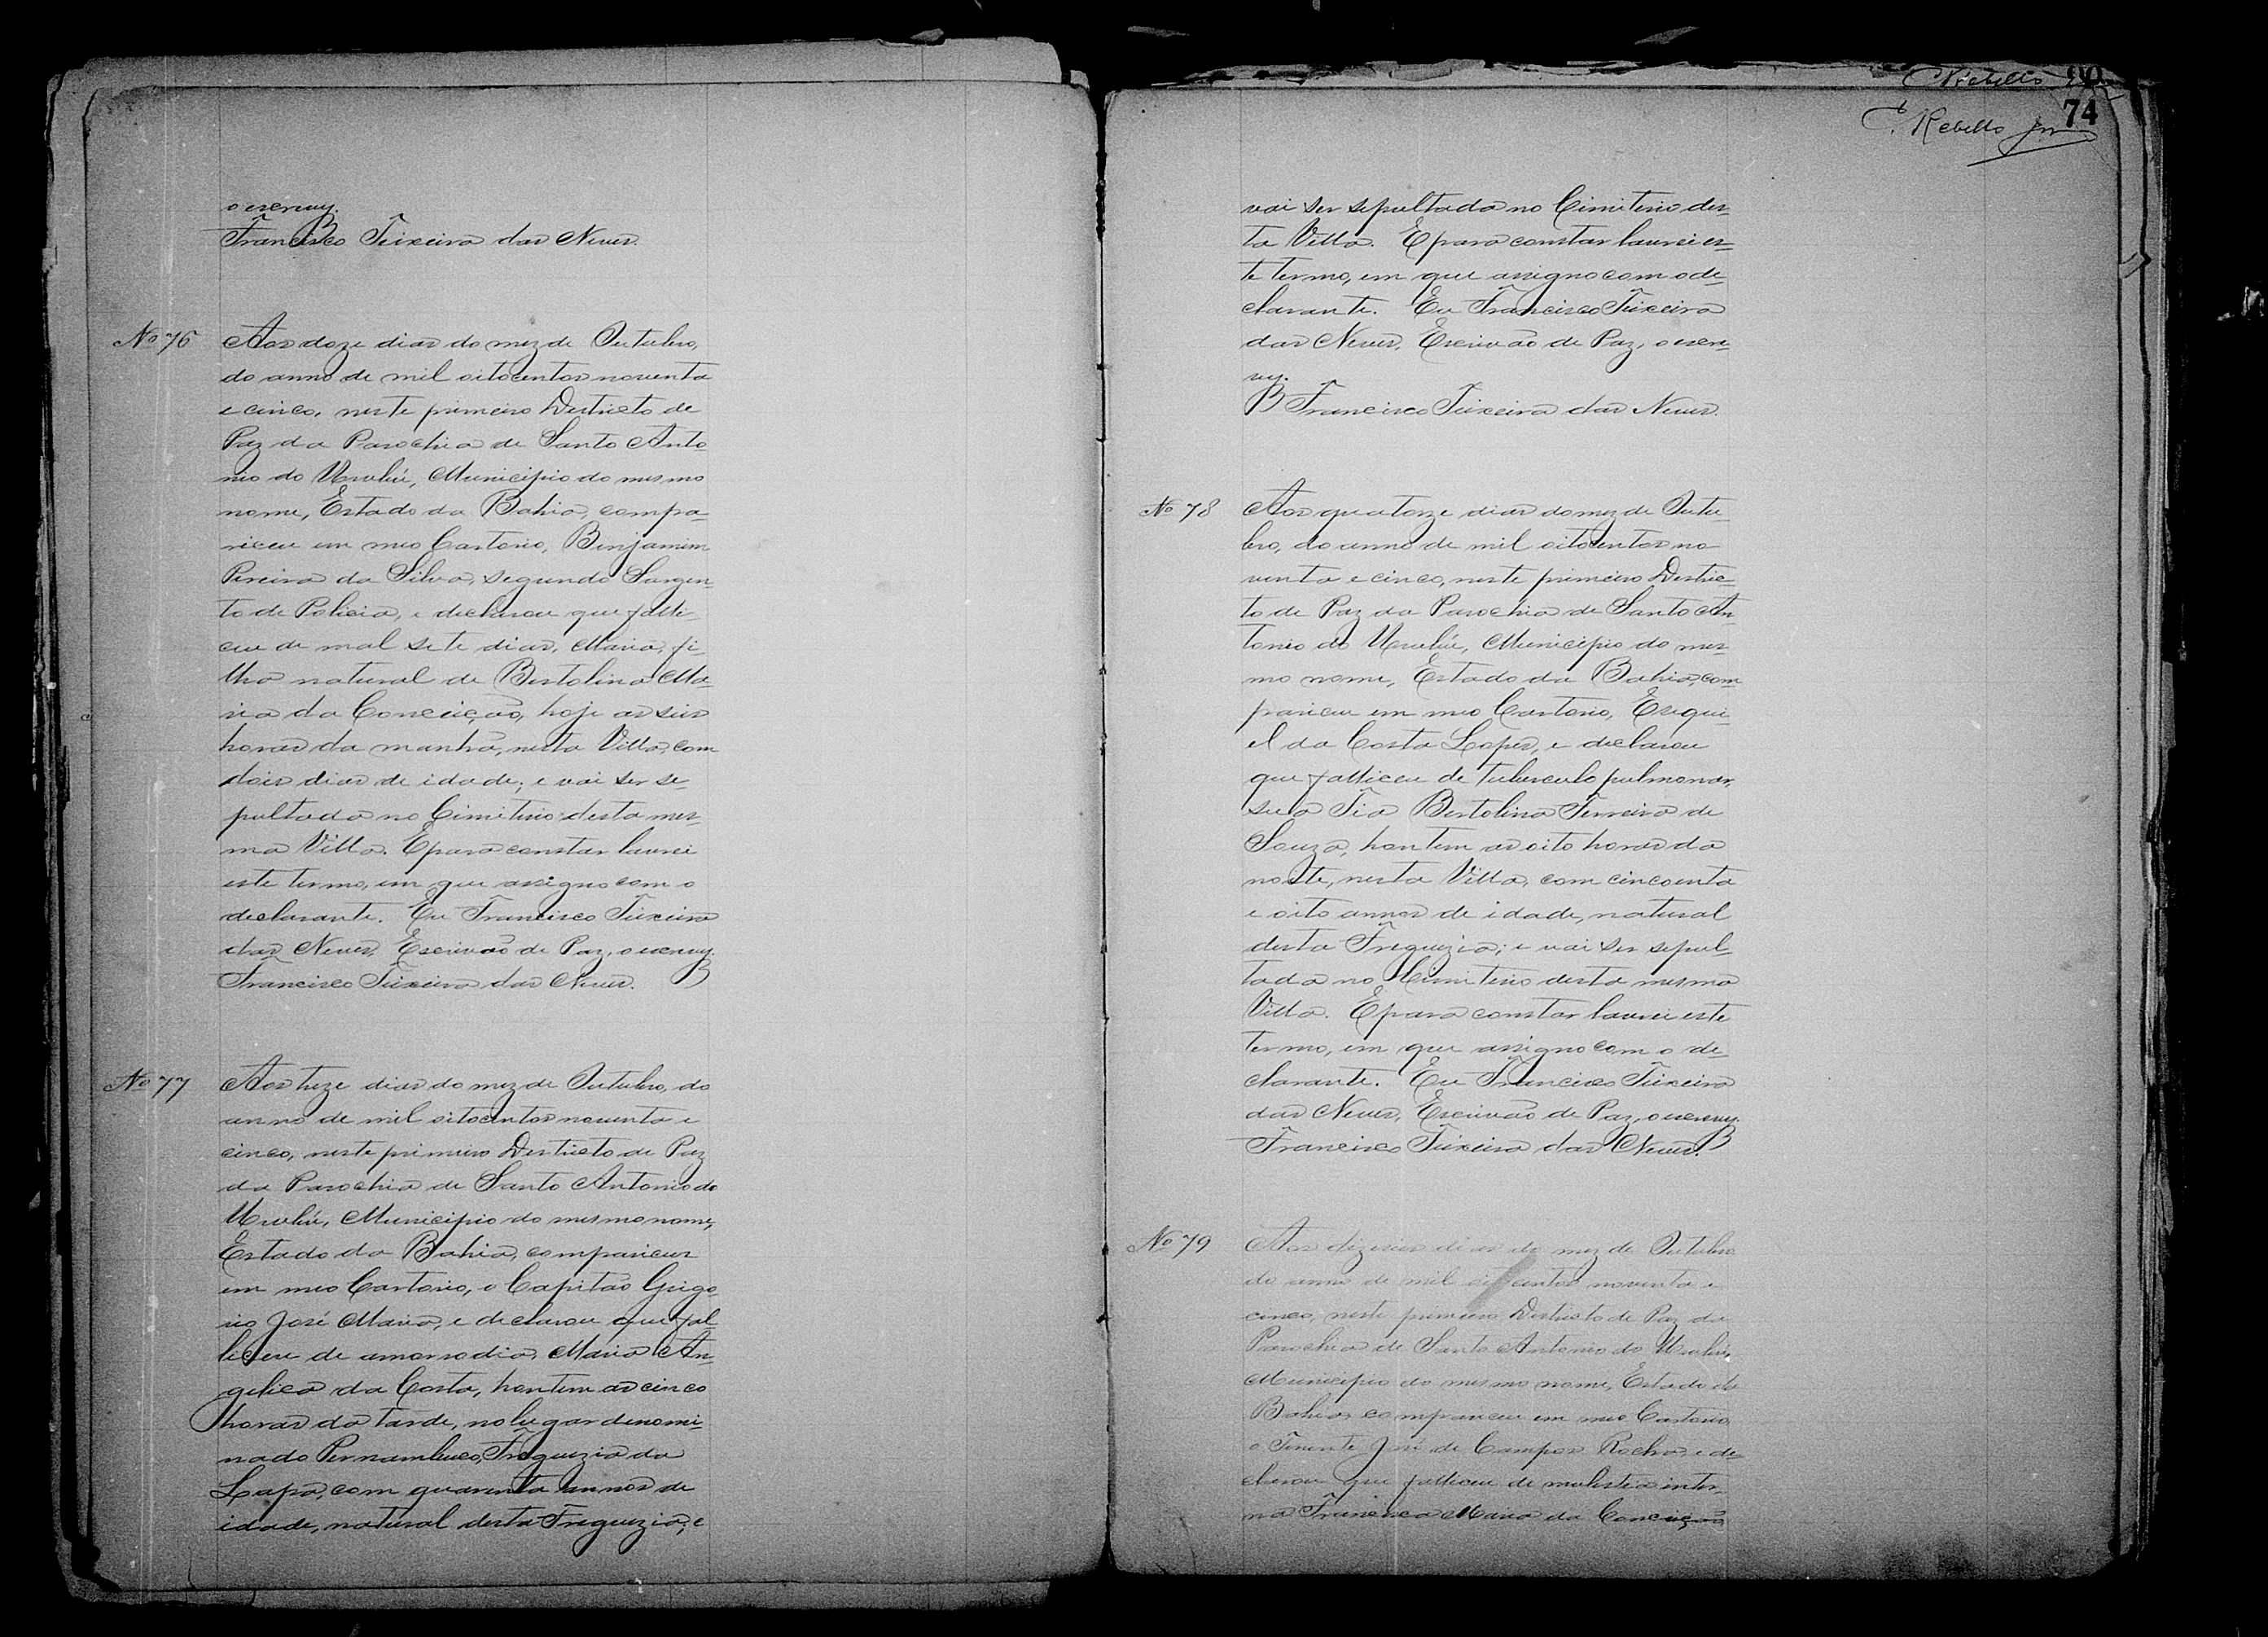 o escrevy.
Francisco Teixeira das Neves.
B
Nº 76
Aos doze dias do mez de Outubro,
do anno de mil oitocentos noventa
e cinco, neste primeiro Destricto de
Paz da Parochia de Santo Anto-
nio do Urubú, Municipio do mesmo
nome, Estado da Bahia, compa-
riceu em meo Cartorio, Benjamim
Pereira da Silva, segundo Sargen-
to de Policia, e declarou que falle-
ceu de mal sete dias, Maria, fi-
lha natural de Bertolina Ma-
ria da Conceição, hoje as seis
horas da manhã, nesta Villa, com
dois dias de idade; e vai ser se-
pultada no Cimiterio desta mes-
ma Villa. E para constar lavrei
este termo, em que assigno com o
declarante. Eu Francisco Teixeira
das Neves, Escrivão de Paz, o escrevy.
Francisco Teixeira das Neves. B
Nº 77
Aos treze dias do mez de Outubro, do
anno de mil oitocentos noventa e
cinco, neste primeiro Destricto de Paz
da Parochia de Santo Antonio do
Urubú, Municipio do mesmo nome,
Estado da Bahia, compariceu
em meo Cartorio, o Capitão Grigo-
rio José Maria, e declarou que fal-
leceu de Maria An-
gelica da Costa, hontem as cinco
horas da tarde, no lugar denomi-
nado Pernambuco, Freguezia da
Lapa, com quarenta annos de
idade, natural desta Freguezia; e
Rebello
74
Rebello Jor
vai ser sepultada no Cimiterio des-
ta Villa. E para constar lavrei es-
te termo, em que assigno com o de-
clarante. Eu Francisco Teixeira
das Neves, Escrivão de Paz, o escre-
vy.
B Francisco Teixeira das Neves.
Nº 78
Aos quatorze dias do mez de Outu-
bro, do anno de mil oitocentos no-
venta e cinco, neste primeiro Destric-
to de Paz da Parochia de Santo An-
tonio do Urubú, Municipio do mes-
mo nome, Estado da Bahia, com-
pariceu em meo Cartorio, Ezequi-
el da Costa Lopes, e declarou
que falliceu de tuberculo pulmonar,
sua Tia Bertolina Ferreira de
Souza, hontem as oito horas da
noite, nesta Villa, com cincoenta
e oito annos de idade, natural
desta Freguezia; e vai ser sepul-
tada no Cimiterio desta mesma
Villa. E para constar lavrei este
termo, em que assigno com o de-
clarante. Eu Francisco Teixeira
das Neves, Escrivão de Paz, o escrevy.
Francisco Teixeira das Neves. B
Nº 79
Aos dizeseis dias do mez de Outubro
do anno de mil oitocentos noventa e
cinco, neste primeiro Destricto de Paz da
Parochia de Santo Antonio do Urubú,
Municipio do mesmo nome, Estado da
Bahia, compariceu em meo Cartorio,
o Tenente José de Campos Rocha, e de-
clarou que falliceu de molestia inter-
na Francisca Maria da Conceição